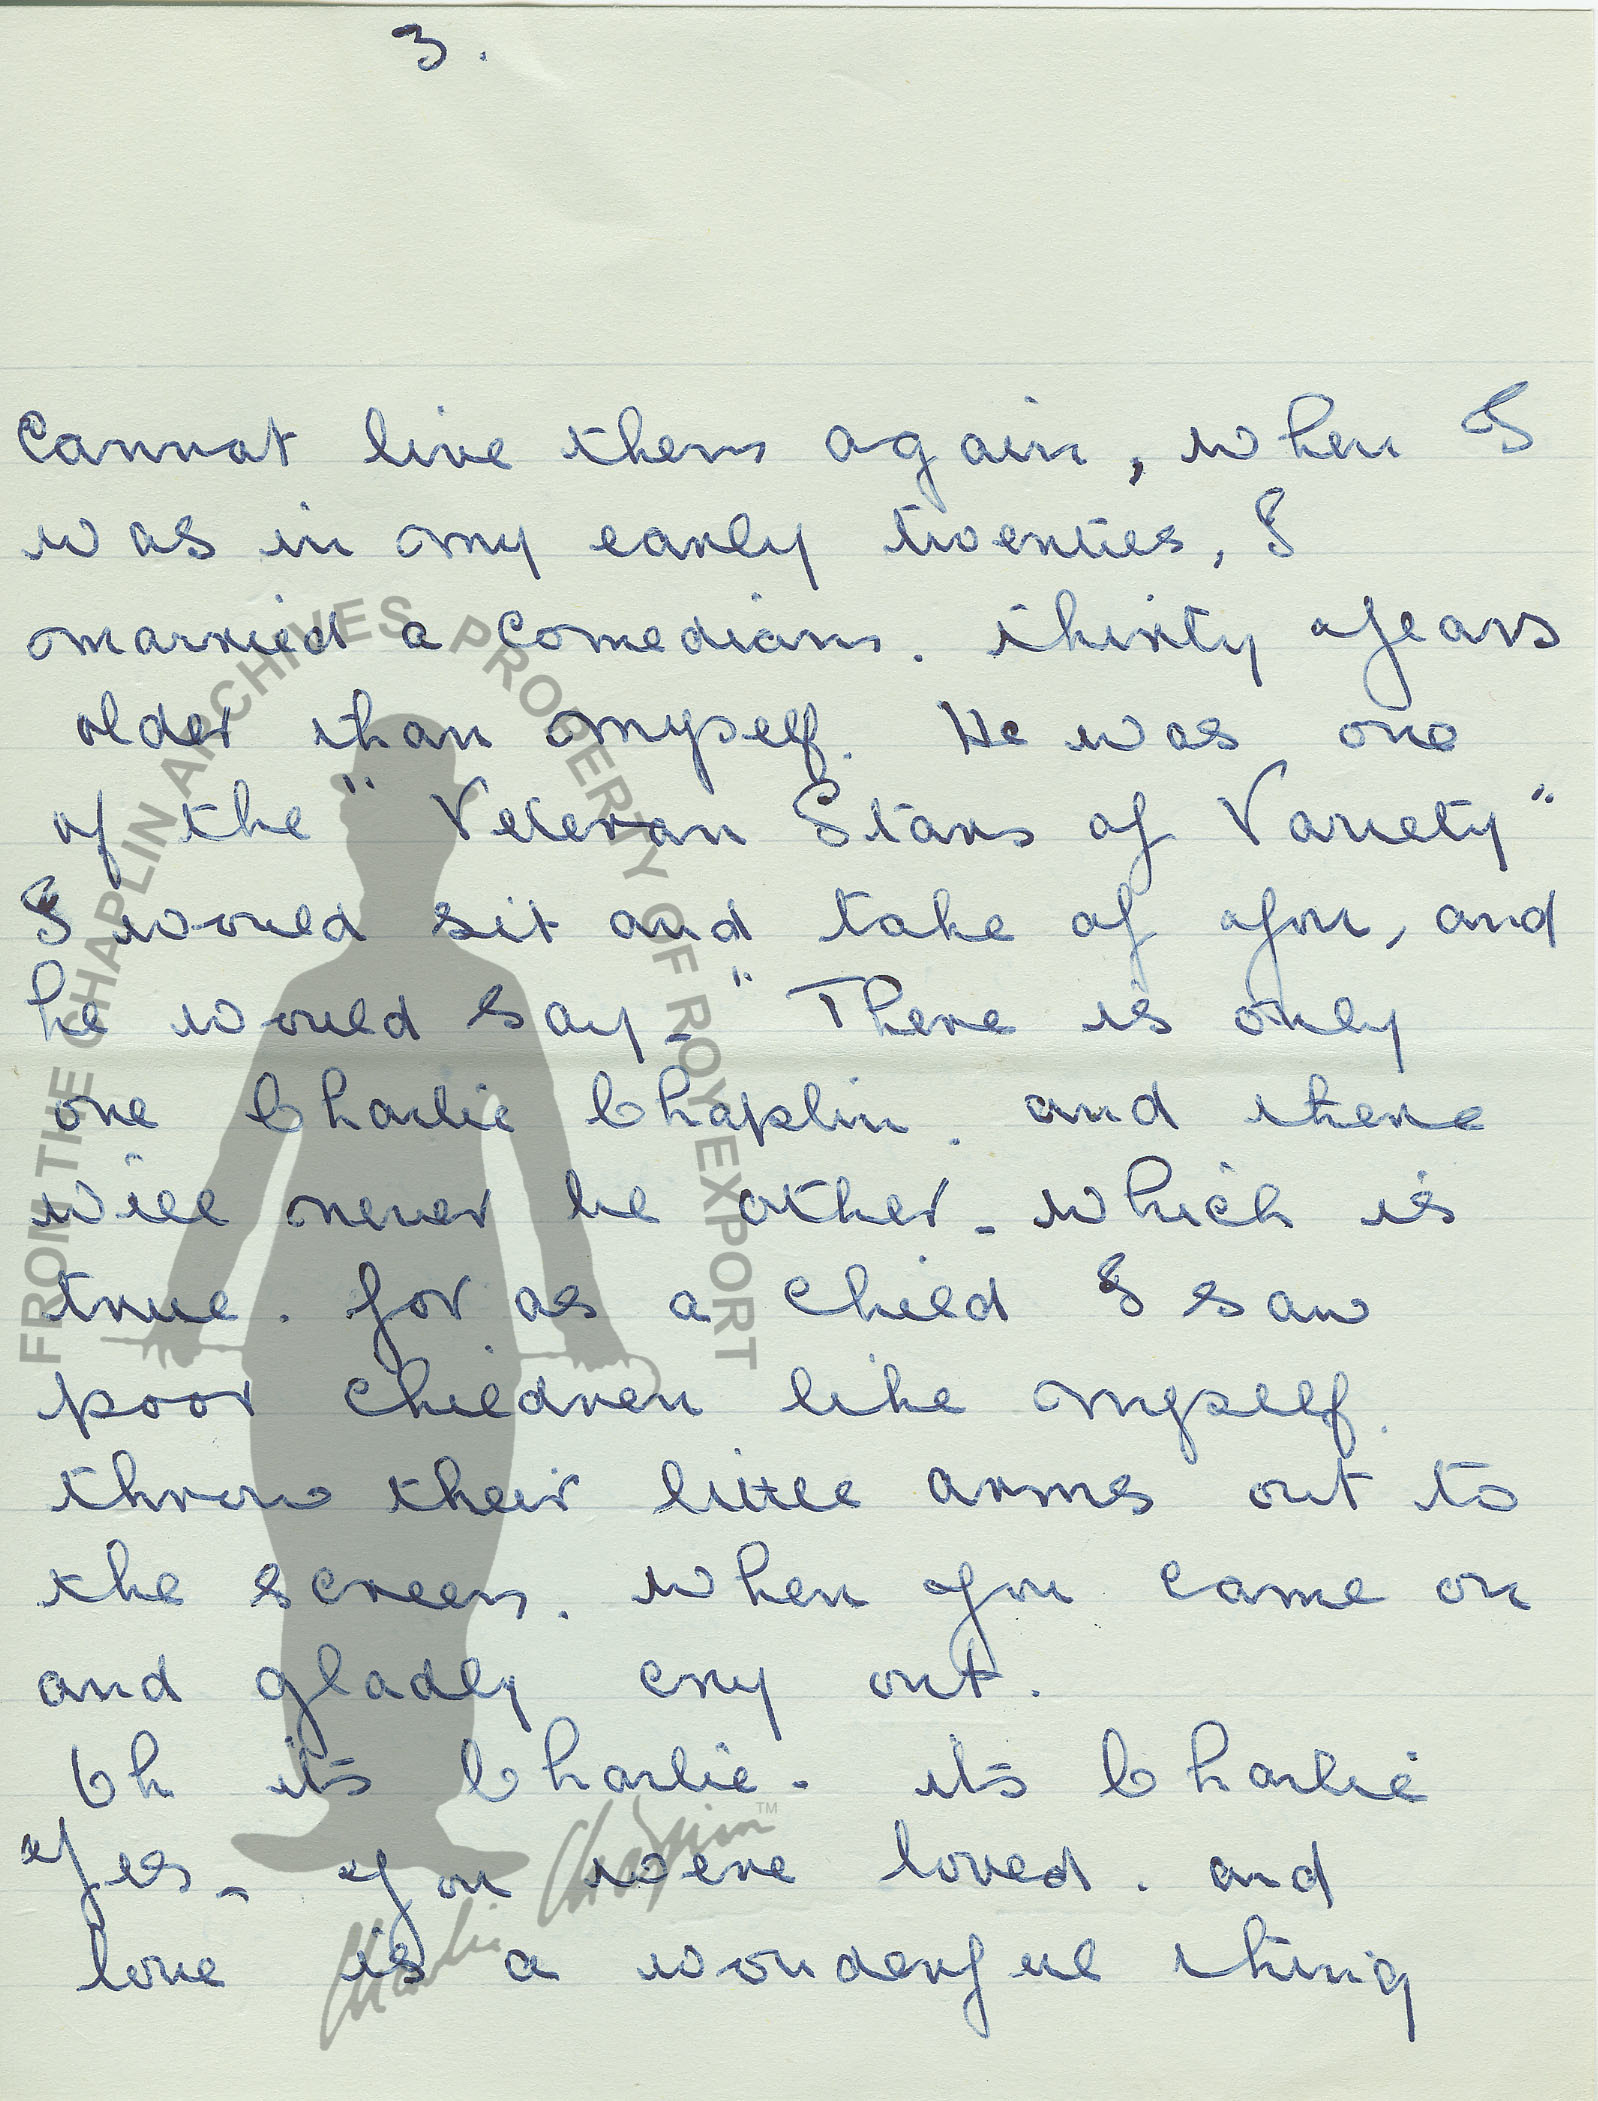 3.
cannot live them again, when I
was in my early twenties, I
married a comedian. thirty years
older than myself. He was one
of the "Veteran Stars of Variety"
I would sit and take of you, and
he would say - "There is only
one Charlie Chaplin. and there
will never be other - which is
true. for as a child I saw
poor children like myself.
throw their little arms out to
the screen. when you came on
and gladly cry out.
Oh its Charlie - its Charlie
Yes - you were loved. and
love is a wonderful thing
FROM THE CHAPLIN ARCHIVES PROPERTY OF ROY EXPORT
Charlie Chaplin™